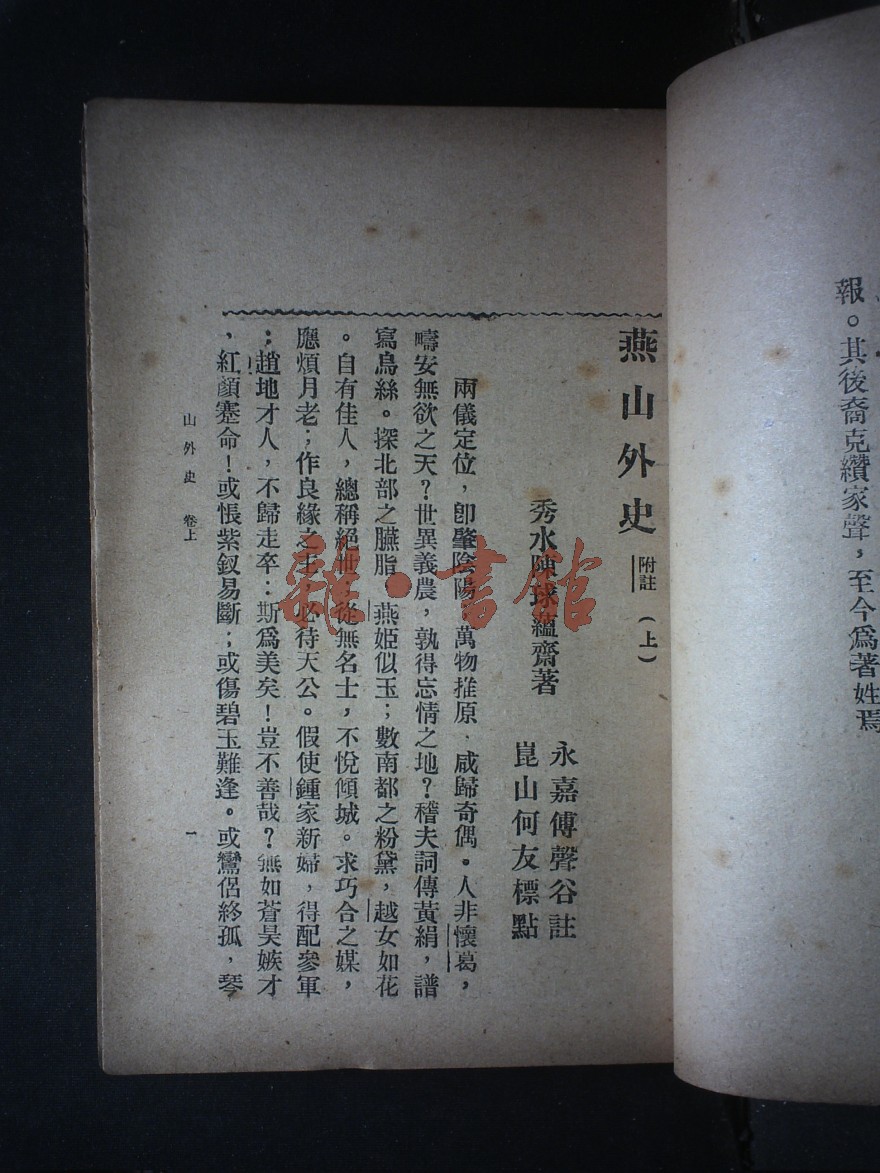 報。其後裔克纘家聲，至今爲著姓焉
燕山外史 附註 (上)
秀水陳球蘊齋著
永嘉傅聲谷註
崑山何友標點
兩儀定位，卽肇陰陽，萬物推原，咸歸奇偶。人非懷葛，
疇安無欲之天？世異義農，孰得忘情之地？稽夫詞傳黃絹，譜
寫烏絲。探北部之臙脂，燕姬似玉；數南都之粉黛，越女如花
。自有佳人，總稱絕世，從無名士，不悅傾城。求巧合之媒，
應煩月老；作良緣之主，必待天公。假使鍾家新婦，得配參軍
；趙地才人，不歸走卒：斯爲美矣！豈不善哉？無如蒼昊嫉才
，紅顏蹇命！或悵紫釵易斷；或傷碧玉難逢。或鸞侶終孤，琴
山外史 卷上
一
雜·書館